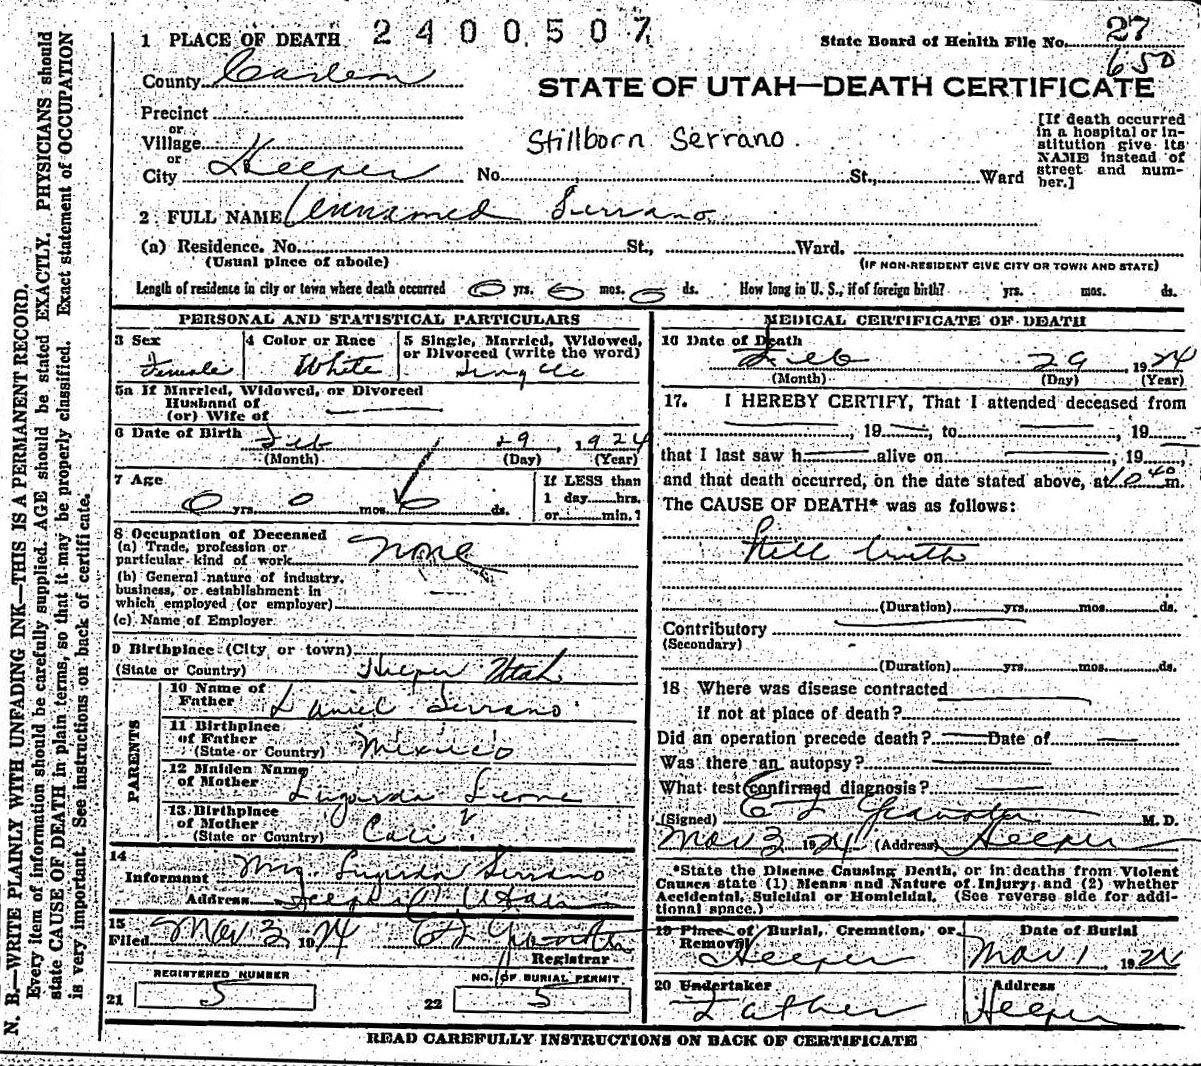 2400507
1 PLACE OF DEATH
State Board of Health File No. 27
650
County Carbon
STATE OF UTAH—DEATH CERTIFICATE
Precinct
or
Village
or
City Helper No. St., Ward
Stillborn Serrano.
[If death occurred
in a hospital or in-
stitution give its
NAME instead of
street and num-
ber.]
2 FULL NAME Unnamed Serrano
(a) Residence. No. St., Ward.
(Usual place of abode) (IF NON-RESIDENT GIVE CITY OR TOWN AND STATE)
Length of residence in city or town where death occurred 0 yrs. 0 mos. 0 ds. How long in U. S., if of foreign birth? yrs. mos. ds.
PERSONAL AND STATISTICAL PARTICULARS
3 Sex
Female
4 Color or Race
White
5 Single, Married, Widowed,
or Divorced (write the word)
Single
5a If Married, Widowed, or Divorced
Husband of
(or) Wife of
6 Date of Birth Feb 29, 1924
(Month) (Day) (Year)
7 Age
0 yrs. 0 mos. 0 ds.
If LESS than
1 day hrs.
or min.?
8 Occupation of Deceased
(a) Trade, profession or
particular kind of work none
(b) General nature of industry,
business, or establishment in
which employed (or employer)
(c) Name of Employer
9 Birthplace (City or town)
(State or Country) Helper Utah
PARENTS
10 Name of
Father Daniel Serrano
11 Birthplace
of Father
(State or Country) Mexico
12 Maiden Name
of Mother Lugarda
13 Birthplace
of Mother
(State or Country) Cali
14
Informant Mrs. Lugarda Serrano
Address Helper Utah
15
Filed Mar 3 1924
Registrar
REGISTERED NUMBER
21 5
NO. OF BURIAL PERMIT
22 5
MEDICAL CERTIFICATE OF DEATH
16 Date of Death
Feb 29 1924
(Month) (Day) (Year)
17. I HEREBY CERTIFY, That I attended deceased from
, 19 , to , 19
that I last saw h alive on , 19 ,
and that death occurred, on the date stated above, at 10 40 m.
The CAUSE OF DEATH* was as follows:
Still birth
(Duration) yrs. mos. ds.
Contributory
(Secondary)
(Duration) yrs. mos. ds.
18 Where was disease contracted
if not at place of death?
Did an operation precede death? Date of
Was there an autopsy?
What test confirmed diagnosis?
(Signed) M. D.
Mar 3 1924 (Address) Helper
*State the Disease Causing Death, or in deaths from Violent
Causes state (1) Means and Nature of Injury; and (2) whether
Accidental, Suicidal or Homicidal. (See reverse side for addi-
tional space.)
19 Place of Burial, Cremation, or
Removal Helper
Date of Burial
Mar 1, 1924
20 Undertaker
Father
Address
Helper
READ CAREFULLY INSTRUCTIONS ON BACK OF CERTIFICATE
N. B.—WRITE PLAINLY WITH UNFADING INK—THIS IS A PERMANENT RECORD.
Every item of information should be carefully supplied. AGE should be stated EXACTLY. PHYSICIANS should
state CAUSE OF DEATH in plain terms, so that it may be properly classified. Exact statement of OCCUPATION
is very important. See instructions on back of certificate.